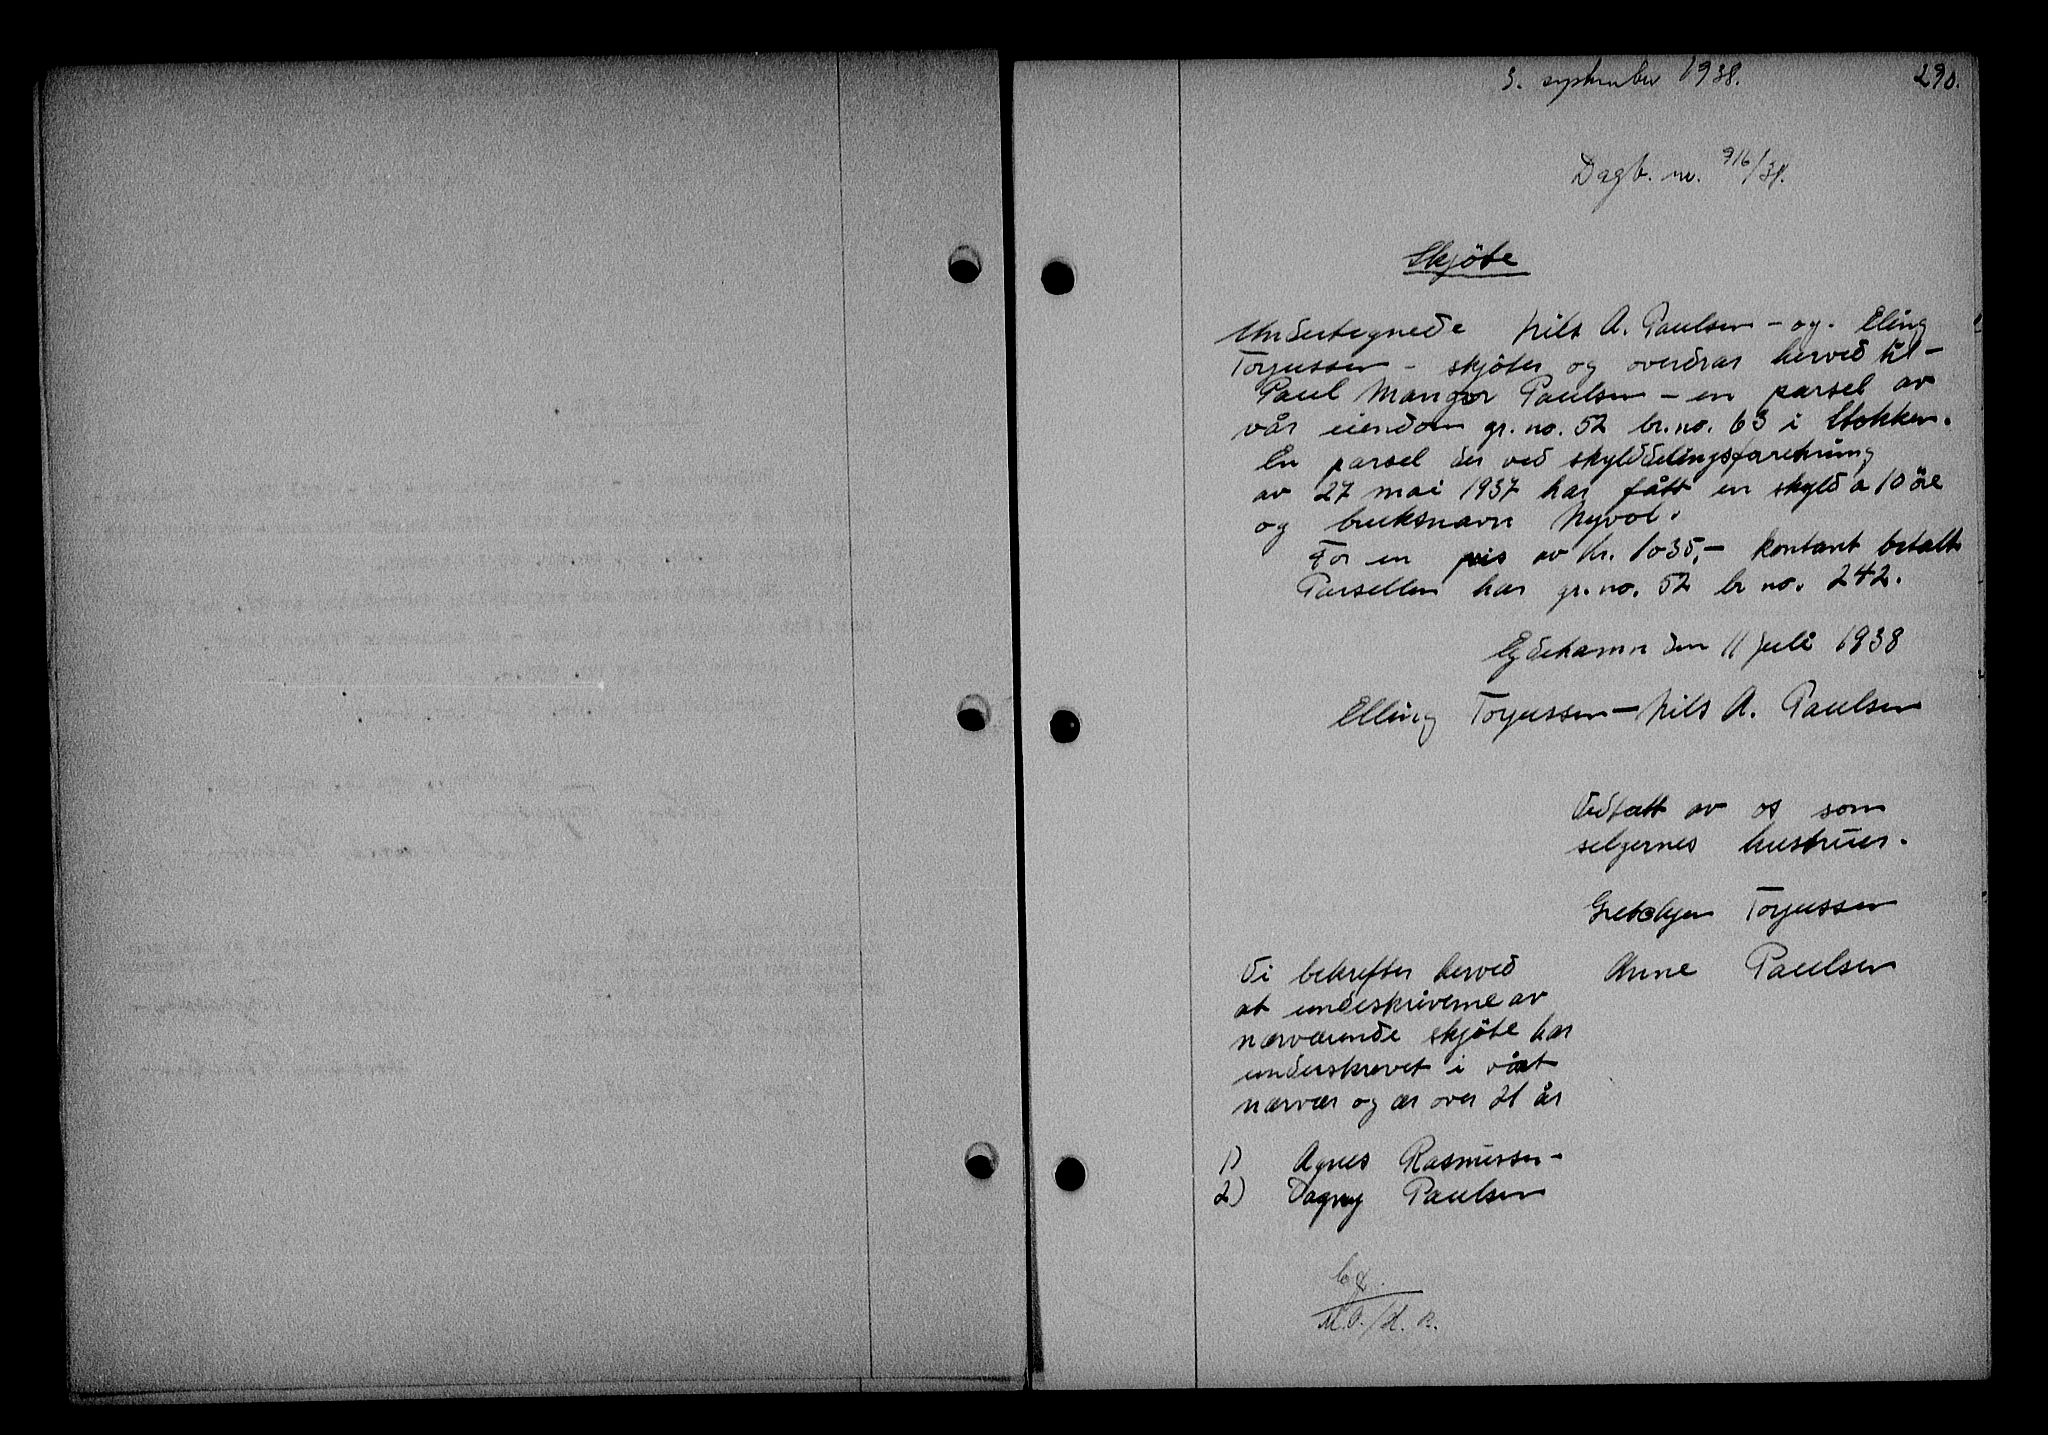 3. september 1938.
290.
Dagb. nr. 916/38.
Skjöte
Undertegnede Nils A. Paulsen - og. Eling
Torjussen - skjöter og overdrar herved til -
Paul Mangor Paulsen - en parsel av
vår eiendom gr. no. 52 br. no. 63 i Stokken.
En parsel der ved skylddelingsforretning
av 27 mai 1937 har fått en skyld a 10 öre
og bruksnavn Nyvol.
For en pris av Kr. 1035,- kontant betalt
Parsellen har gr. no. 52 br no. 242.
Eydehamn den 11 juli 1938
Elling Torjussen - Nils A. Paulsen
Vedtatt av os som
selgernes hustruer.
Torjussen
Anne Paulsen
Vi bekrefter herved
at underskriverne av
nærværende skjöte har
underskrevet i vårt
nærvær og ær over 21 år
1) Agnes Rasmussen -
2) Dagny Paulsen